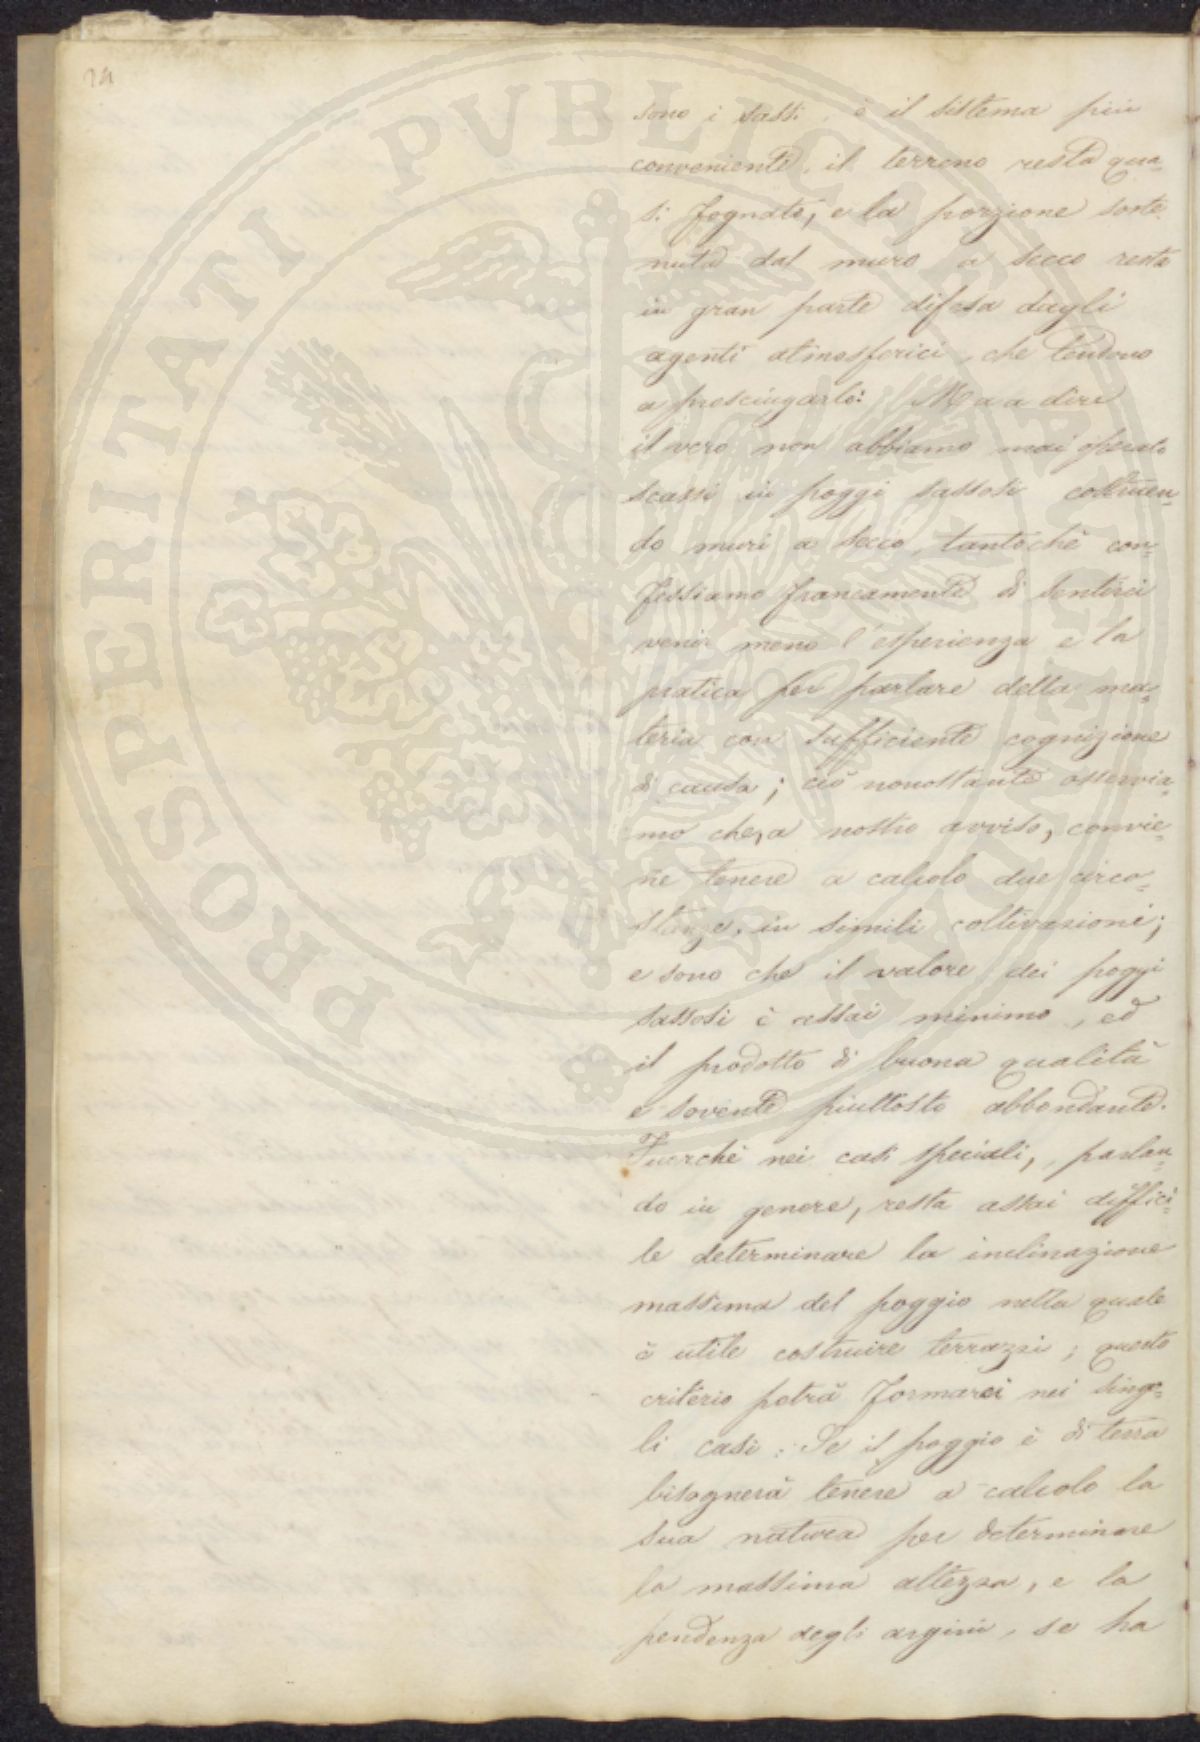 sono i sassi, è il sistema più
conveniente, il terreno resta qua=
si fognato, e la porzione soste
nuta dal muro a secco resta
in gran parte difesa dagli
agenti atmosferici, che tendono
a prosciugarlo: Ma a dire
il vero non abbiamo mai operato
scassi in poggi sassosi costruen=
do muri a secco, tantochè con=
fessiamo francamente di sentirci
venir meno l'esperienza e la
pratica per parlare della ma=
teria con sufficiente cognizione
di causa; ciò nonostante osservia=
mo che, a nostro avviso, convie=
ne tenere a calcolo due circo=
stanze, in simili coltivazioni;
e sono che il valore dei poggi
sassosi è assai minimo, ed
il prodotto di buona qualità
e sovente piuttosto abbondante.
Fuorchè nei casi speciali, parlan=
do in genere, resta assai diffici=
le determinare la inclinazione
massima del poggio nella quale
è utile costruire terrazzi; questo
criterio potrà formarci nei singo=
li casi: Se il poggio è di terra
bisognerà tenere a calcolo la
sua natura per determinare
la massima altezza, e la
pendenza degli argini, se ha
PROSPERITATI PVBLICAE AVGENDAE